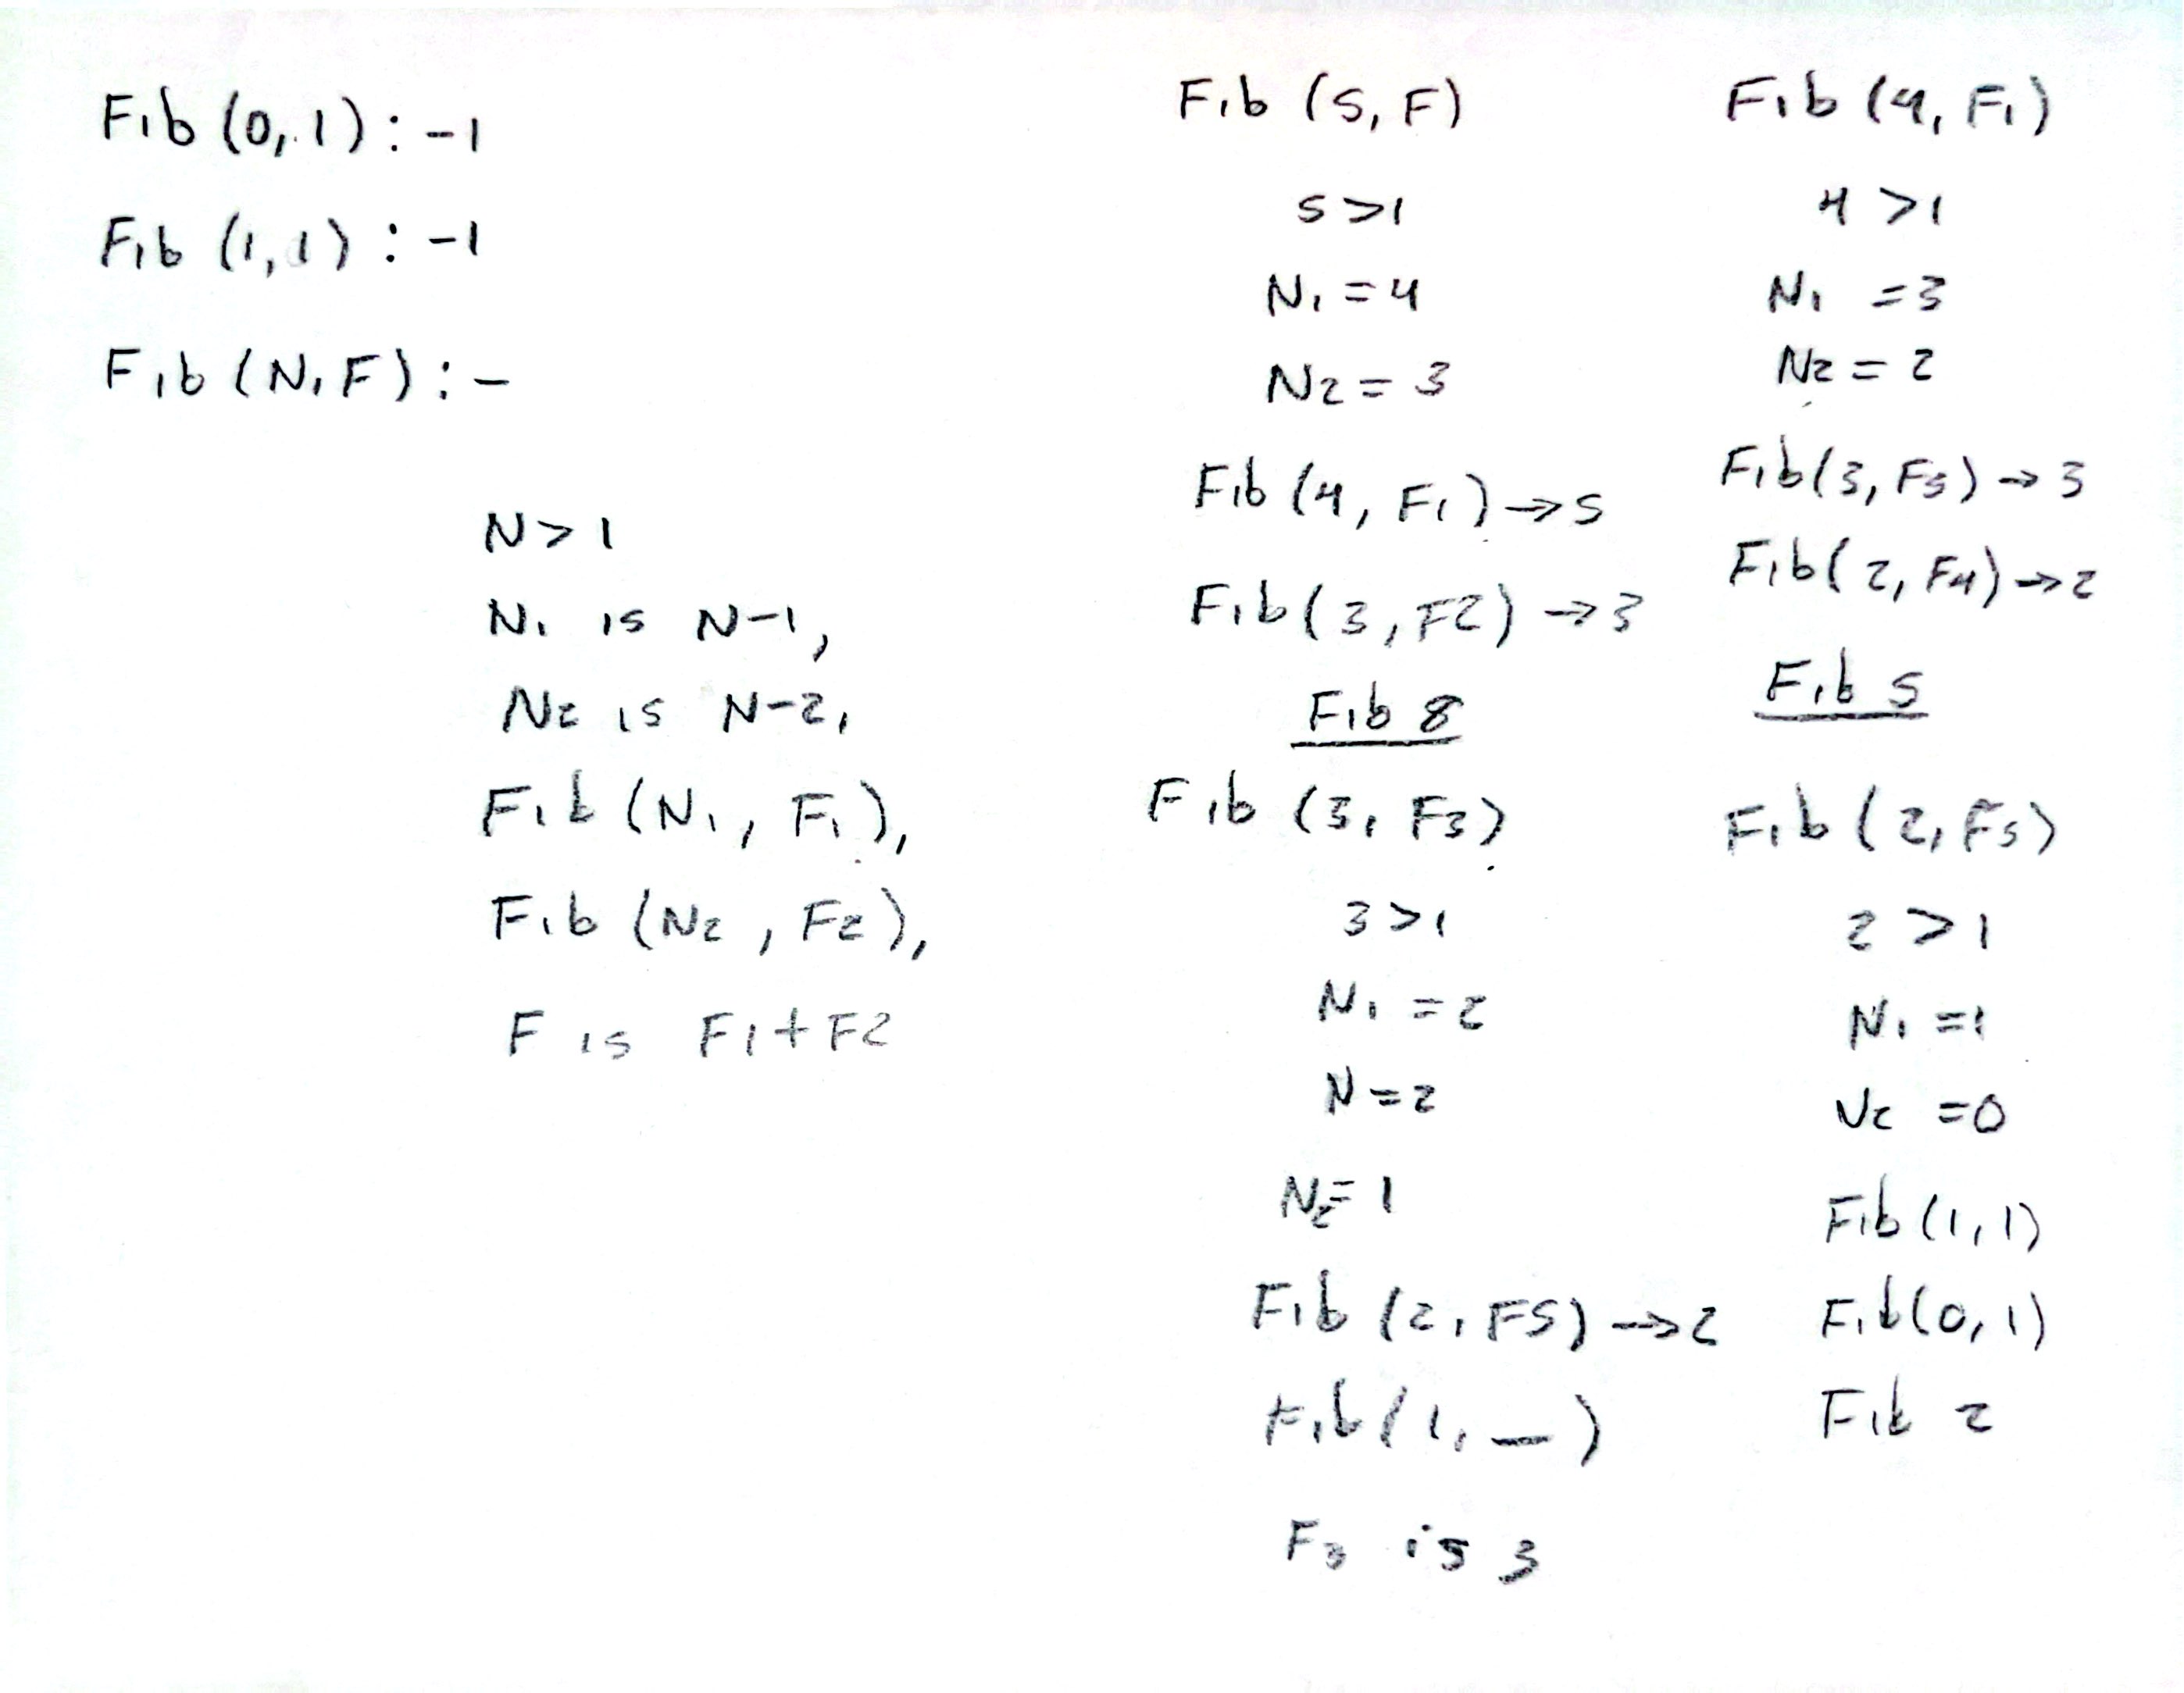 Fib (0, 1) : -1
Fib (1, 1) : -1
Fib (N, F) : -
N > 1
N1 is N-1,
N2 is N-2,
Fib (N1, F1),
Fib (N2, F2),
F is F1 + F2
Fib (5, F)
5 > 1
N1 = 4
N2 = 3
Fib (4, F1) → 5
Fib (3, F2) → 3
Fib 8
Fib (3, F3)
3 > 1
N1 = 2
N = 2
N2 = 1
Fib (2, F5) → 2
Fib (1, _)
F3 is 3
Fib (4, F1)
4 > 1
N1 = 3
N2 = 2
Fib (3, F3) → 3
Fib (2, F4) → 2
Fib 5
Fib (2, F5)
2 > 1
N1 = 1
N2 = 0
Fib (1, 1)
Fib (0, 1)
Fib 2